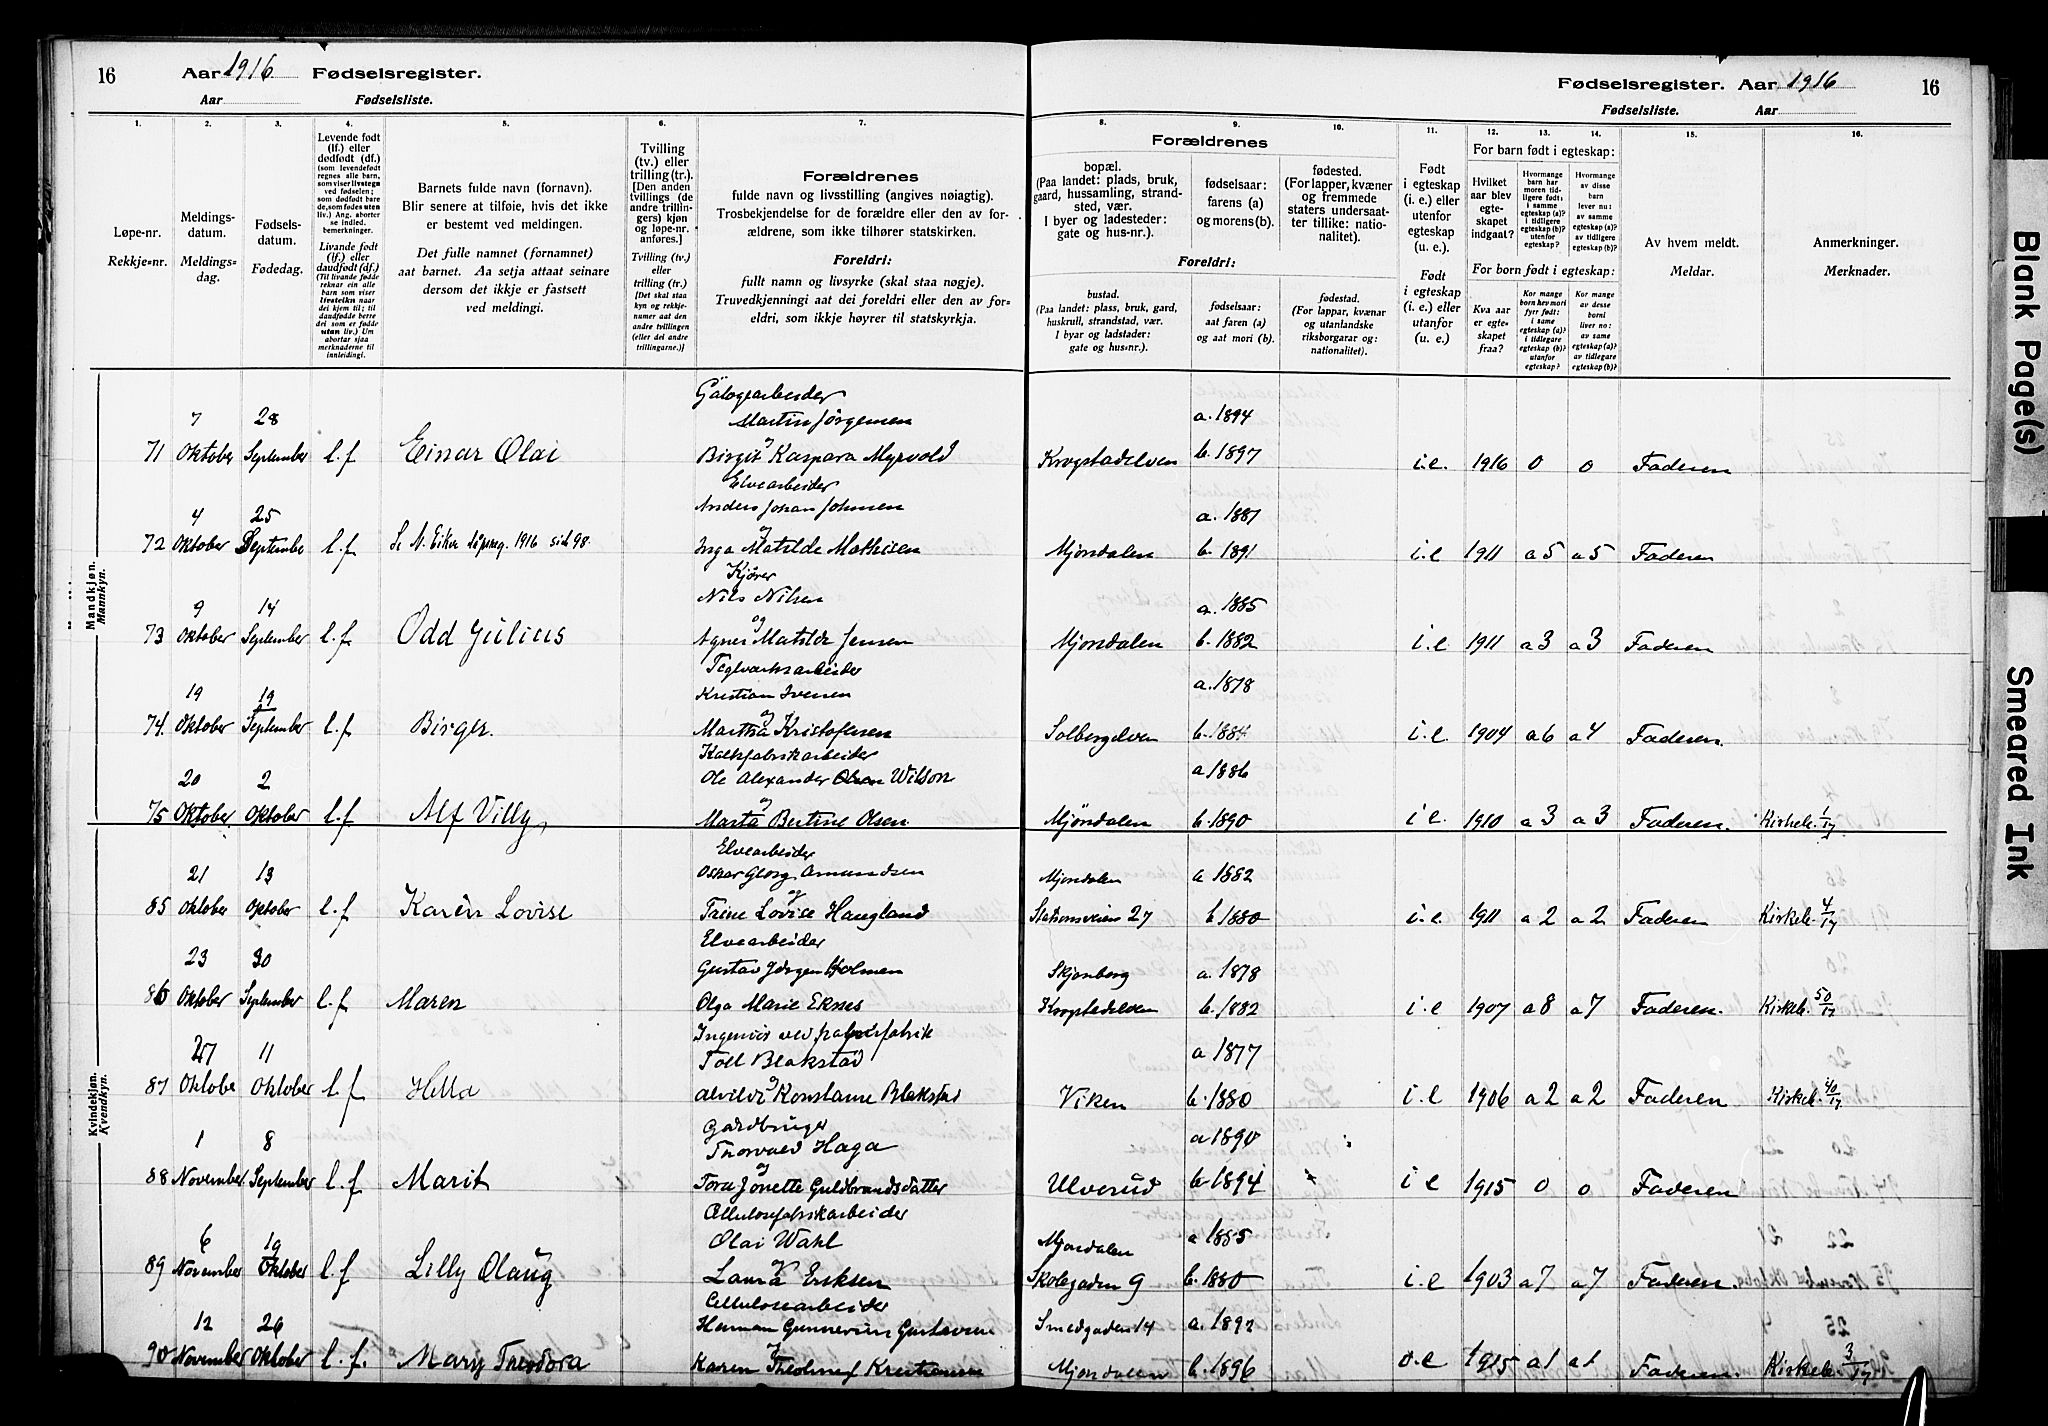 16 Aar 1916 Fødselsregister.
Aar Fødselsliste.
1. 2. 3. 4. 5. 6. 7.
Løpe-nr.
Rekkje-nr.
Meldings-
datum.
Meldings-
dag.
Fødsels-
datum.
Fødedag.
Levende født
(lf.) eller
dødfødt (df.)
(som levendefødt
regnes alle barn,
som viser livstegn
ved fødselen;
som dødfødt bare
de, som fødes uten
liv.) Ang. aborter
se indled.
bemerkninger.
Livande født
(lf.) eller
daudfødt (df.)
(Til livande fødde
reknar ein alle
barn som viser
livsteikn naar
dei kjem til; til
daudfødde berre
dei som er fødde
utan liv.) Um
abortar sjaa
merknaderne til
innleiding.
Barnets fulde navn (fornavn).
Blir senere at tilføie, hvis det ikke
er bestemt ved meldingen.
Det fulle namnet (fornamnet)
aat barnet. Aa setja attaat seinare
dersom det ikkje er fastsett
ved meldingi.
Tvilling
(tv.) eller
trilling (tr.).
[Den anden
tvillings (de
andre trillin-
gers) kjøn
og løpe-nr.
anføres.]
Tvilling (tv.)
eller
trilling (tr.)
[Det skal staa
kyn og rekkje-
numer aat den
andre tvillingen
(eller dei andre
trillingarne.)]
Forældrenes
fulde navn og livsstilling (angives nøiagtig).
Trosbekjendelse for de forældre eller den av for-
ældrene, som ikke tilhører statskirken.
Foreldri:
fullt namn og livsyrke (skal staa nøgje).
Truvedkjenningi aat dei foreldri eller den av for-
eldri, som ikkje høyrer til statskyrkja.
Fødselsregister. Aar 1916 16
Fødselsliste. Aar
8. 9. 10. 11. 12. 13. 14. 15. 16.
Forældrenes
bopæl.
(Paa landet: plads, bruk,
gaard, hussamling, strand-
sted, vær.
I byer og ladesteder:
gate og hus-nr.).
fødselsaar:
farens (a)
og morens (b).
fødested.
(For lapper, kvæner
og fremmede
staters undersaat-
ter tillike: natio-
nalitet).
Foreldri:
bustad.
(Paa landet: plass, bruk, gard,
huskrull, strandstad, vær.
I byar og ladstader:
gate og hus-nr.).
fødselsaar:
aat faren (a)
og aat mori (b).
fødestad.
(For lappar, kvænar
og utanlandske
riksborgarar og:
nationalitet).
Født
i egteskap
(i. e.) eller
utenfor
egteskap
(u. e.).
Født
i egteskap
(i. e.) eller
utanfor
(u. e.).
For barn født i egteskap:
Hvilket
aar blev
egte-
skapet
indgaat?
Hvormange
barn har
moren tid-
ligere født:
i samme
egteskap (a)?
i tidligere
egteskap (b)?
utenfor
egteskap?
Hvormange
av disse
barn
lever nu:
av samme
egteskap (a)?
av tidligere
egteskap (b)?
For born født i egteskap:
Kva aar
er egte-
skapet
fraa?
Kor mange
born hev mori
fyrr født:
i same
egteskap (a)?
i tidlegare
egteskap (b)?
utanfor
egteskap?
Kor mange
av desse
borni
liver no:
av same
egteskap (a)?
av tidlegare
egteskap (b)?
Av hvem meldt.
Meldar.
Anmerkninger.
Merknader.
Mandkjøn.
Mannkyn.
Martin Jørgensen
7 28 a. 1894
71 Oktober September l.f Einar Olai Birgit Kaspara Myrvold Krogstadelven b. 1897 i.e. 1916 0 0 Faderen
Elvearbeider
Anders Johan Johnsen
4 25 a. 1887
72 Oktober September l.f Se N. Eiker 1916 sid 98. Inga Matilde Mathisen Mjøndalen b. 1891 i.e 1911 a5 a5 Faderen
Kjører
Nils Nilsen
9 14 og a. 1885
73 Oktober September l.f Odd Julius Agnes Matilde Jensen Mjøndalen b. 1882 i.e 1911 a3 a3 Faderen
Teglverksarbeider
19 19 Kristian Iversen a. 1878
74. Oktober September l.f Birger. Martha Kristofersen Solbergelven b. 1884 i.e. 1904 a6 a4 Faderen.
Kalkfabrikarbeider
20 2 Ole Alexander Olsen Wilson a 1886
75 Oktober Oktober l.f Alf Villy, Marta Bertine Olsen Mjøndalen b. 1890 i e. 1910 a3 a3 Faderen. Kirkeb. 1/17
Kvindekjøn.
Kvendkyn.
Elvearbeider
21 13 Oskar Georg Amundsen Mjøndalen a 1882
85 Oktober Oktober l.f Karen Lovise Trine Lovise Haugland Stationsveien 27 b 1880 i.e. 1911 a2 a2 Faderen Kirkeb. 4/17
Elvearbeider
23 30 Gustav Jørgen Holmen Skjønberg a. 1878
86 Oktober September l.f Maren Olga Marie Eknes Krogstadelven b. 1882 i.e 1907 a8 a7 Faderen. Kirkeb. 50/17
Ingeniør ved papirfabrik
27 11 Toll Blakstad a 1877
87 Oktobe Oktober l.f Hella Alvilde Konstanse Blakstad Viken b. 1880 i.e 1906 a2 a2 Faderen Kirkeb. 40/17
Gardbruger
1 8 Thorvald Haga a 1890
88 November September l.f Marit Tora Jonette Guldbrandsdatter Ulverud b 1894 i e 1915 0 0 Faderen
Cellulosefabrikarbeider
6 19 Olai Wahl Mjøndalen a 1885
89 November Oktober l.f Lilly Olaug Laura Eriksen Skolegaden 9 b. 1880 i.e 1903 a7 a7 Faderen.
Cellulosearbeider
12 26 Herman Gunnerius Gustavsen Smedgaden 14 a. 1892
90 November Oktober l.f. Mary Theodora Karen Kristiansen Mjøndalen b. 1896 1915 a1 a1 Faderen. Kirkeb. 3/17
Blank Page(s)
Smeared Ink